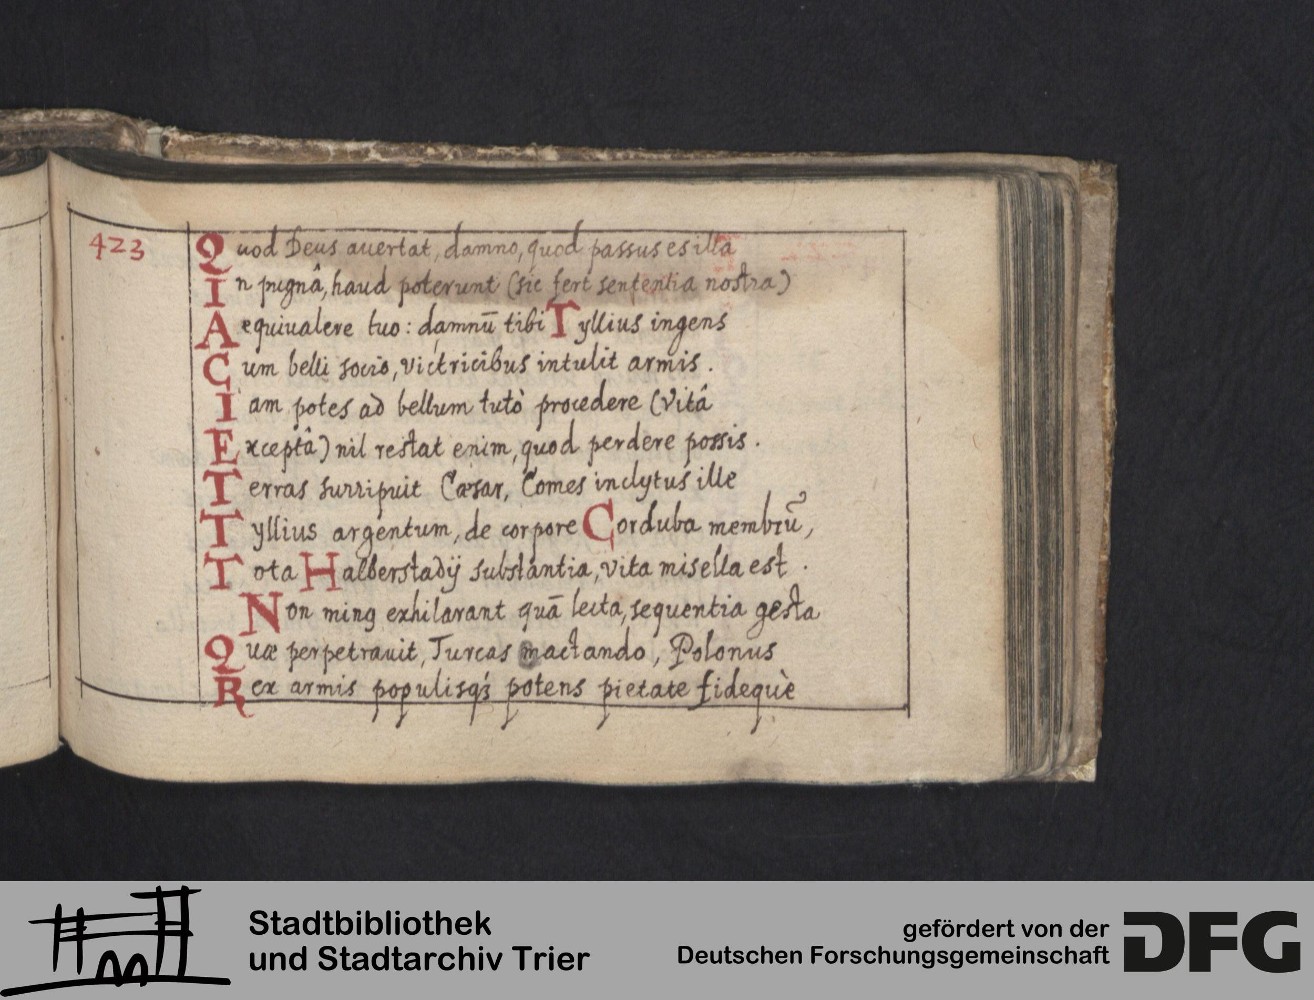 423
Quod Deus auertat, damno, quod passus es illa
In pugnâ, haud poterunt (sic fert sententia nostra)
Aequiualere tuo: damnū tibi Tyllius ingens
Cum belli socio, victricibus intulit armis.
Iam potes ad bellum tutò procedere (vitâ
Exceptâ) nil restat enim, quod perdere possis.
Terras surripuit Cæsar, Comes inclytus ille
Tyllius argentum, de corpore Corduba membrū,
Tota Halberstadij substantia, vita misella est.
Non minꝗ exhilarant quā lecta, sequentia gesta
Quæ perpetrauit, Turcas mactando, Polonus
Rex armis populisqꝫ potens pietate fidequè
Stadtbibliothek
und Stadtarchiv Trier
gefördert von der
Deutschen Forschungsgemeinschaft
DFG